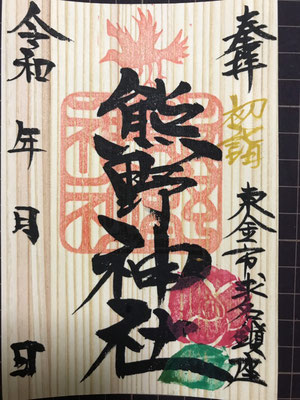 奉拝
初詣
東金市求名鎮座
熊野神社
令和 年 月 日